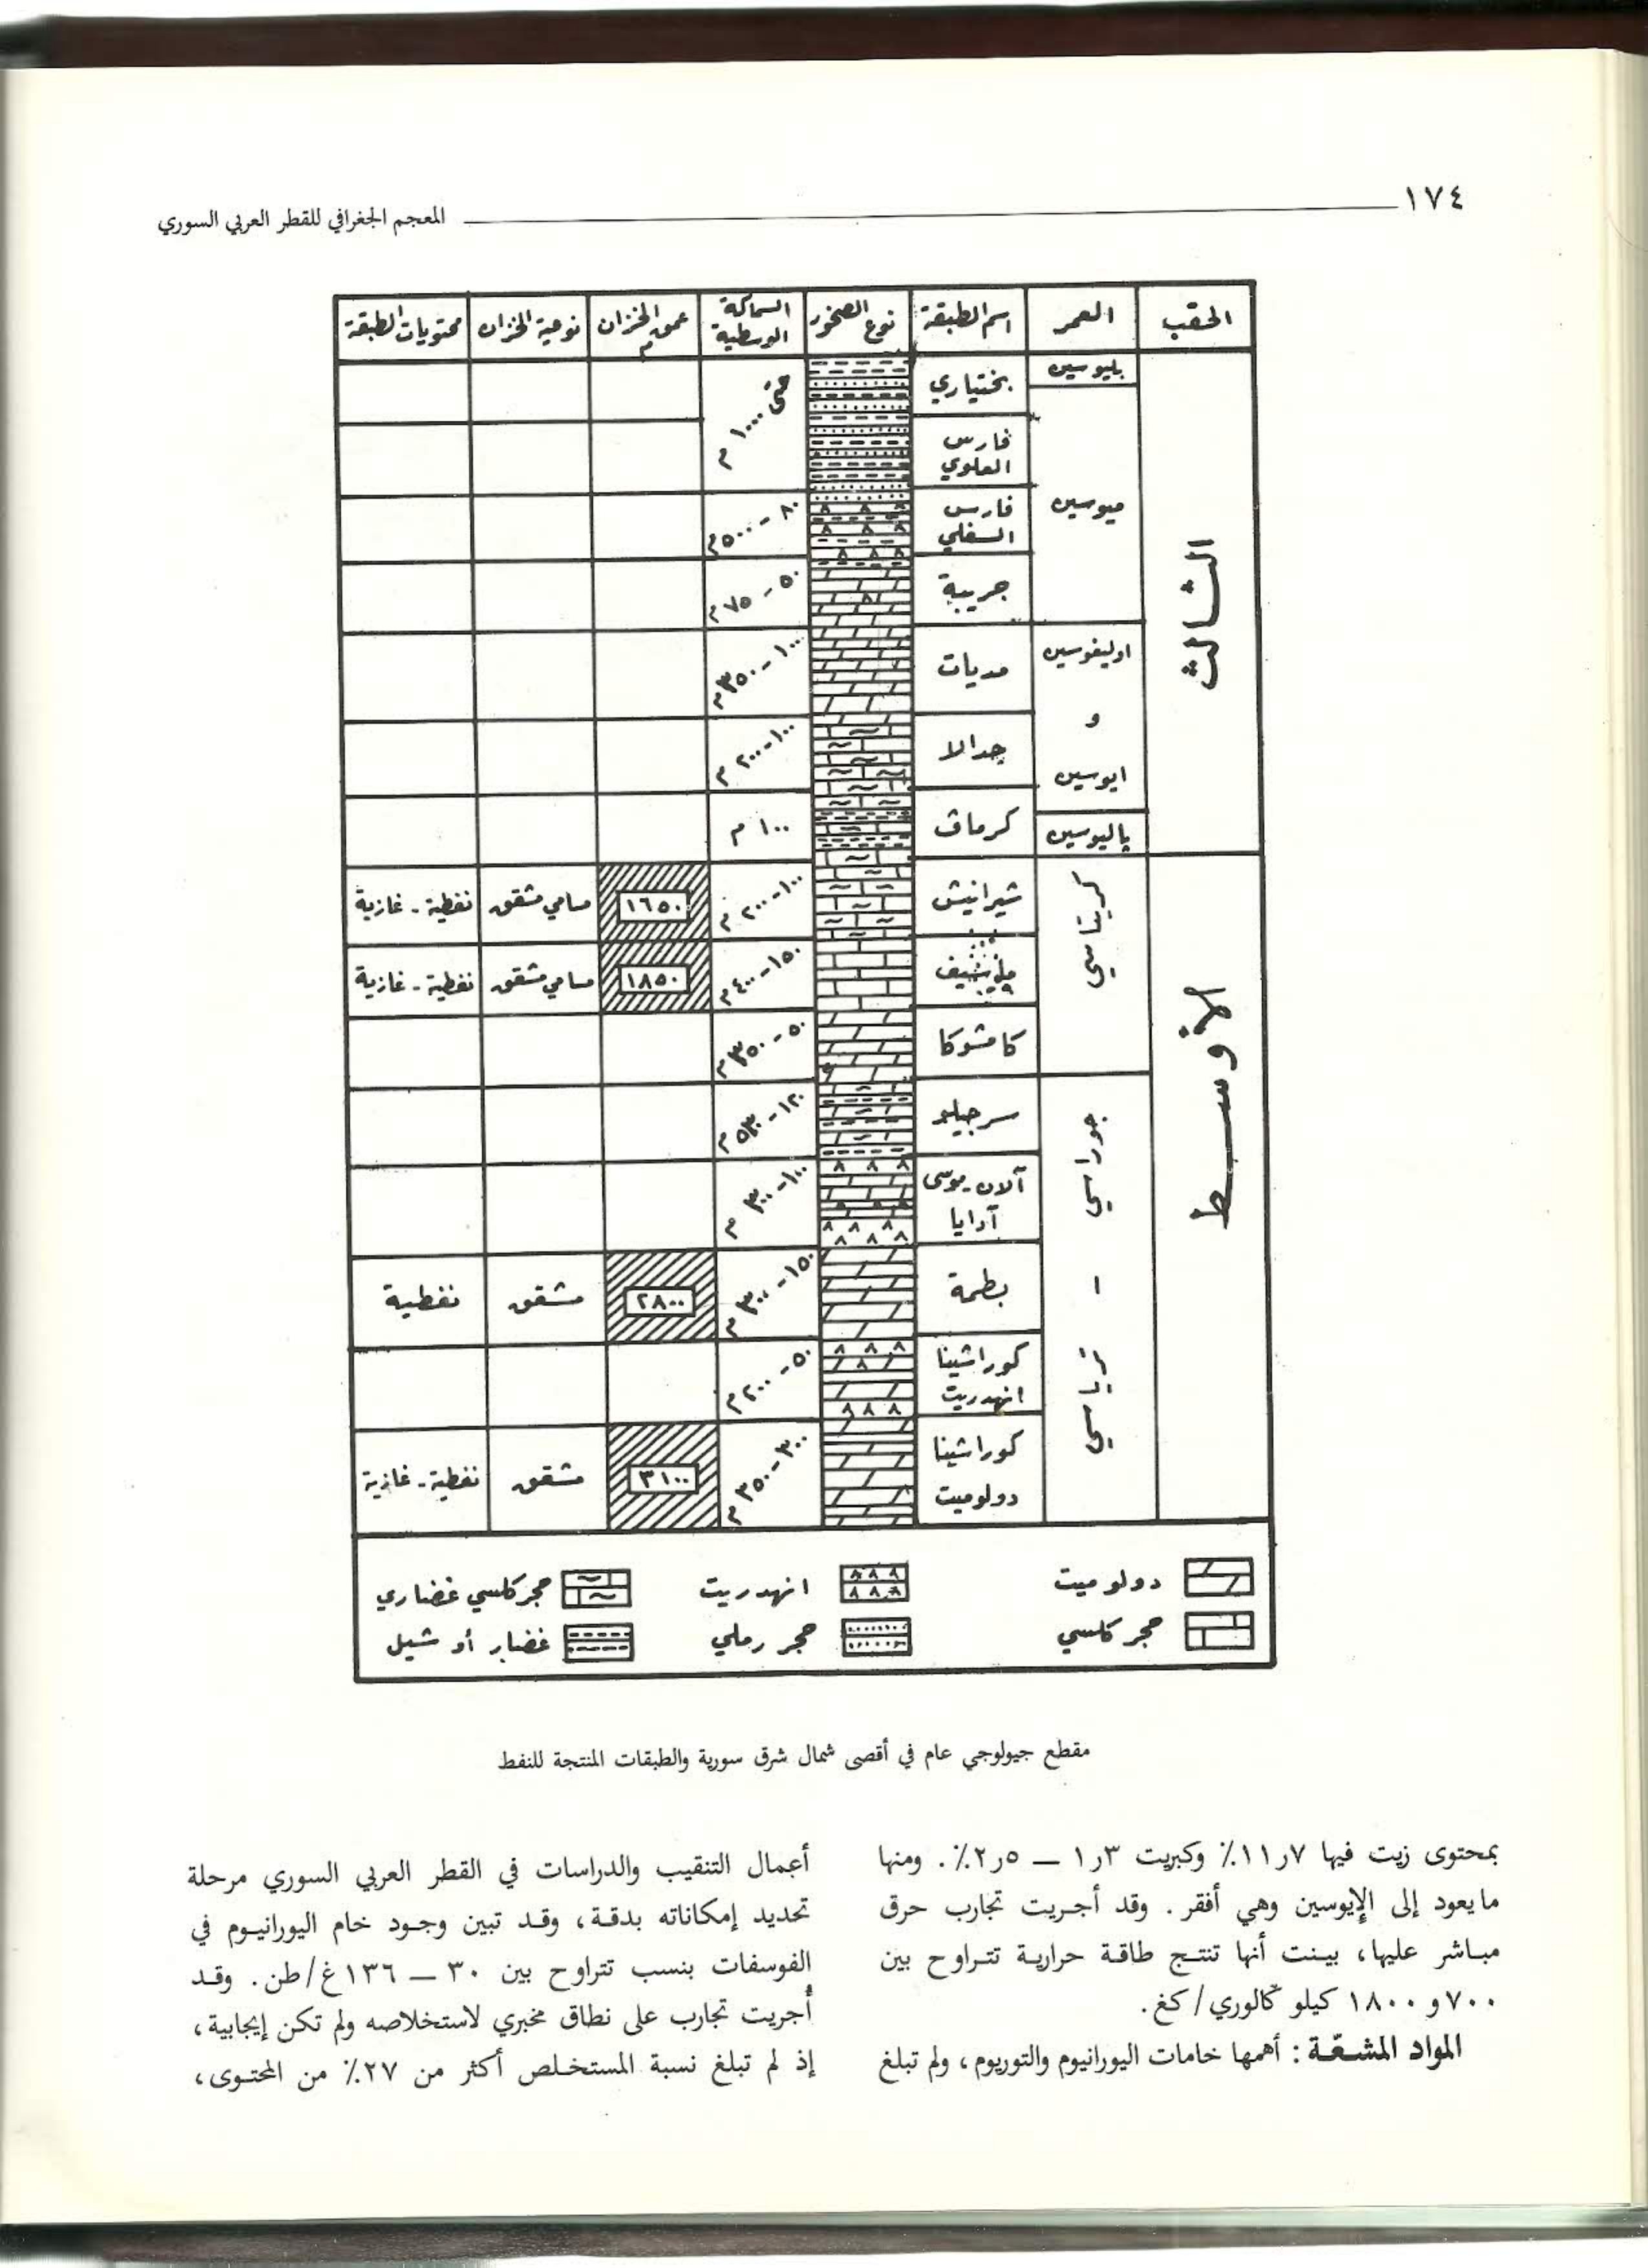 ١٧٤
المعجم الجغرافي للقطر العربي السوري
الحقب
العمر
اسم الطبقة
نوع الصخور
السماكة الوسطية
عمق الخزان م
نوعية الخزان
محتويات الطبقة
الثالث
بليوسين
بختياري
حتى ١٠٠٠ م
ميوسين
فارس العلوي
فارس السفلي
٨٠ - ٥٠٠م
جريبة
٥٠ - ٧٥م
اوليغوسين
و
ايوسين
مديات
١٠٠ - ٣٥٠م
جدالا
١٠٠ - ٢٠٠ م
پاليوسين
كرماف
١٠٠ م
الأوسط
كريتاسي
شيرانيش
١٠٠ - ٢٠٠ م
١٦٥٠
مسامي مشقق
نفطية - غازية
١٥٠ - ٤٠٠م
١٨٥٠
مسامي مشقق
نفطية - غازية
كامشوكا
٥٠ - ٣٥٠م
جوراسي
-
ترياسي
سرجيلو
آلان - موسى
آدايا
١٠٠ - ٣٠٠ م
بطمة
١٥٠ - ٣٠٠ م
٢٨٠٠
مشقق
نفطية
كوراشينا
انهدريت
٥٠ - ٢٠٠م
كوراشينا
دولوميت
٣٠٠ - ٣٥٠ م
٣١٠٠
مشقق
نفطية - غازية
دولوميت
انهدريت
حجر كلسي غضاري
حجر كلسي
حجر رملي
غضار أو شيل
مقطع جيولوجي عام في أقصى شمال شرق سورية والطبقات المنتجة للنفط
بمحتوى زيت فيها ٧ر١١٪ وكبريت ٣ر١ — ٥ر٢٪. ومنها
مايعود إلى الإيوسين وهي أفقر. وقد أجريت تجارب حرق
مباشر عليها، بينت أنها تنتج طاقة حرارية تتراوح بين
٧٠٠ و ١٨٠٠ كيلو كالوري/كغ.
المواد المشعّة : أهمها خامات اليورانيوم والتوريوم، ولم تبلغ
أعمال التنقيب والدراسات في القطر العربي السوري مرحلة
تحديد إمكاناته بدقة، وقد تبين وجود خام اليورانيوم في
الفوسفات بنسب تتراوح بين ٣٠ — ١٣٦غ/طن. وقد
أجريت تجارب على نطاق مخبري لاستخلاصه ولم تكن إيجابية،
إذ لم تبلغ نسبة المستخلص أكثر من ٢٧٪ من المحتوى،